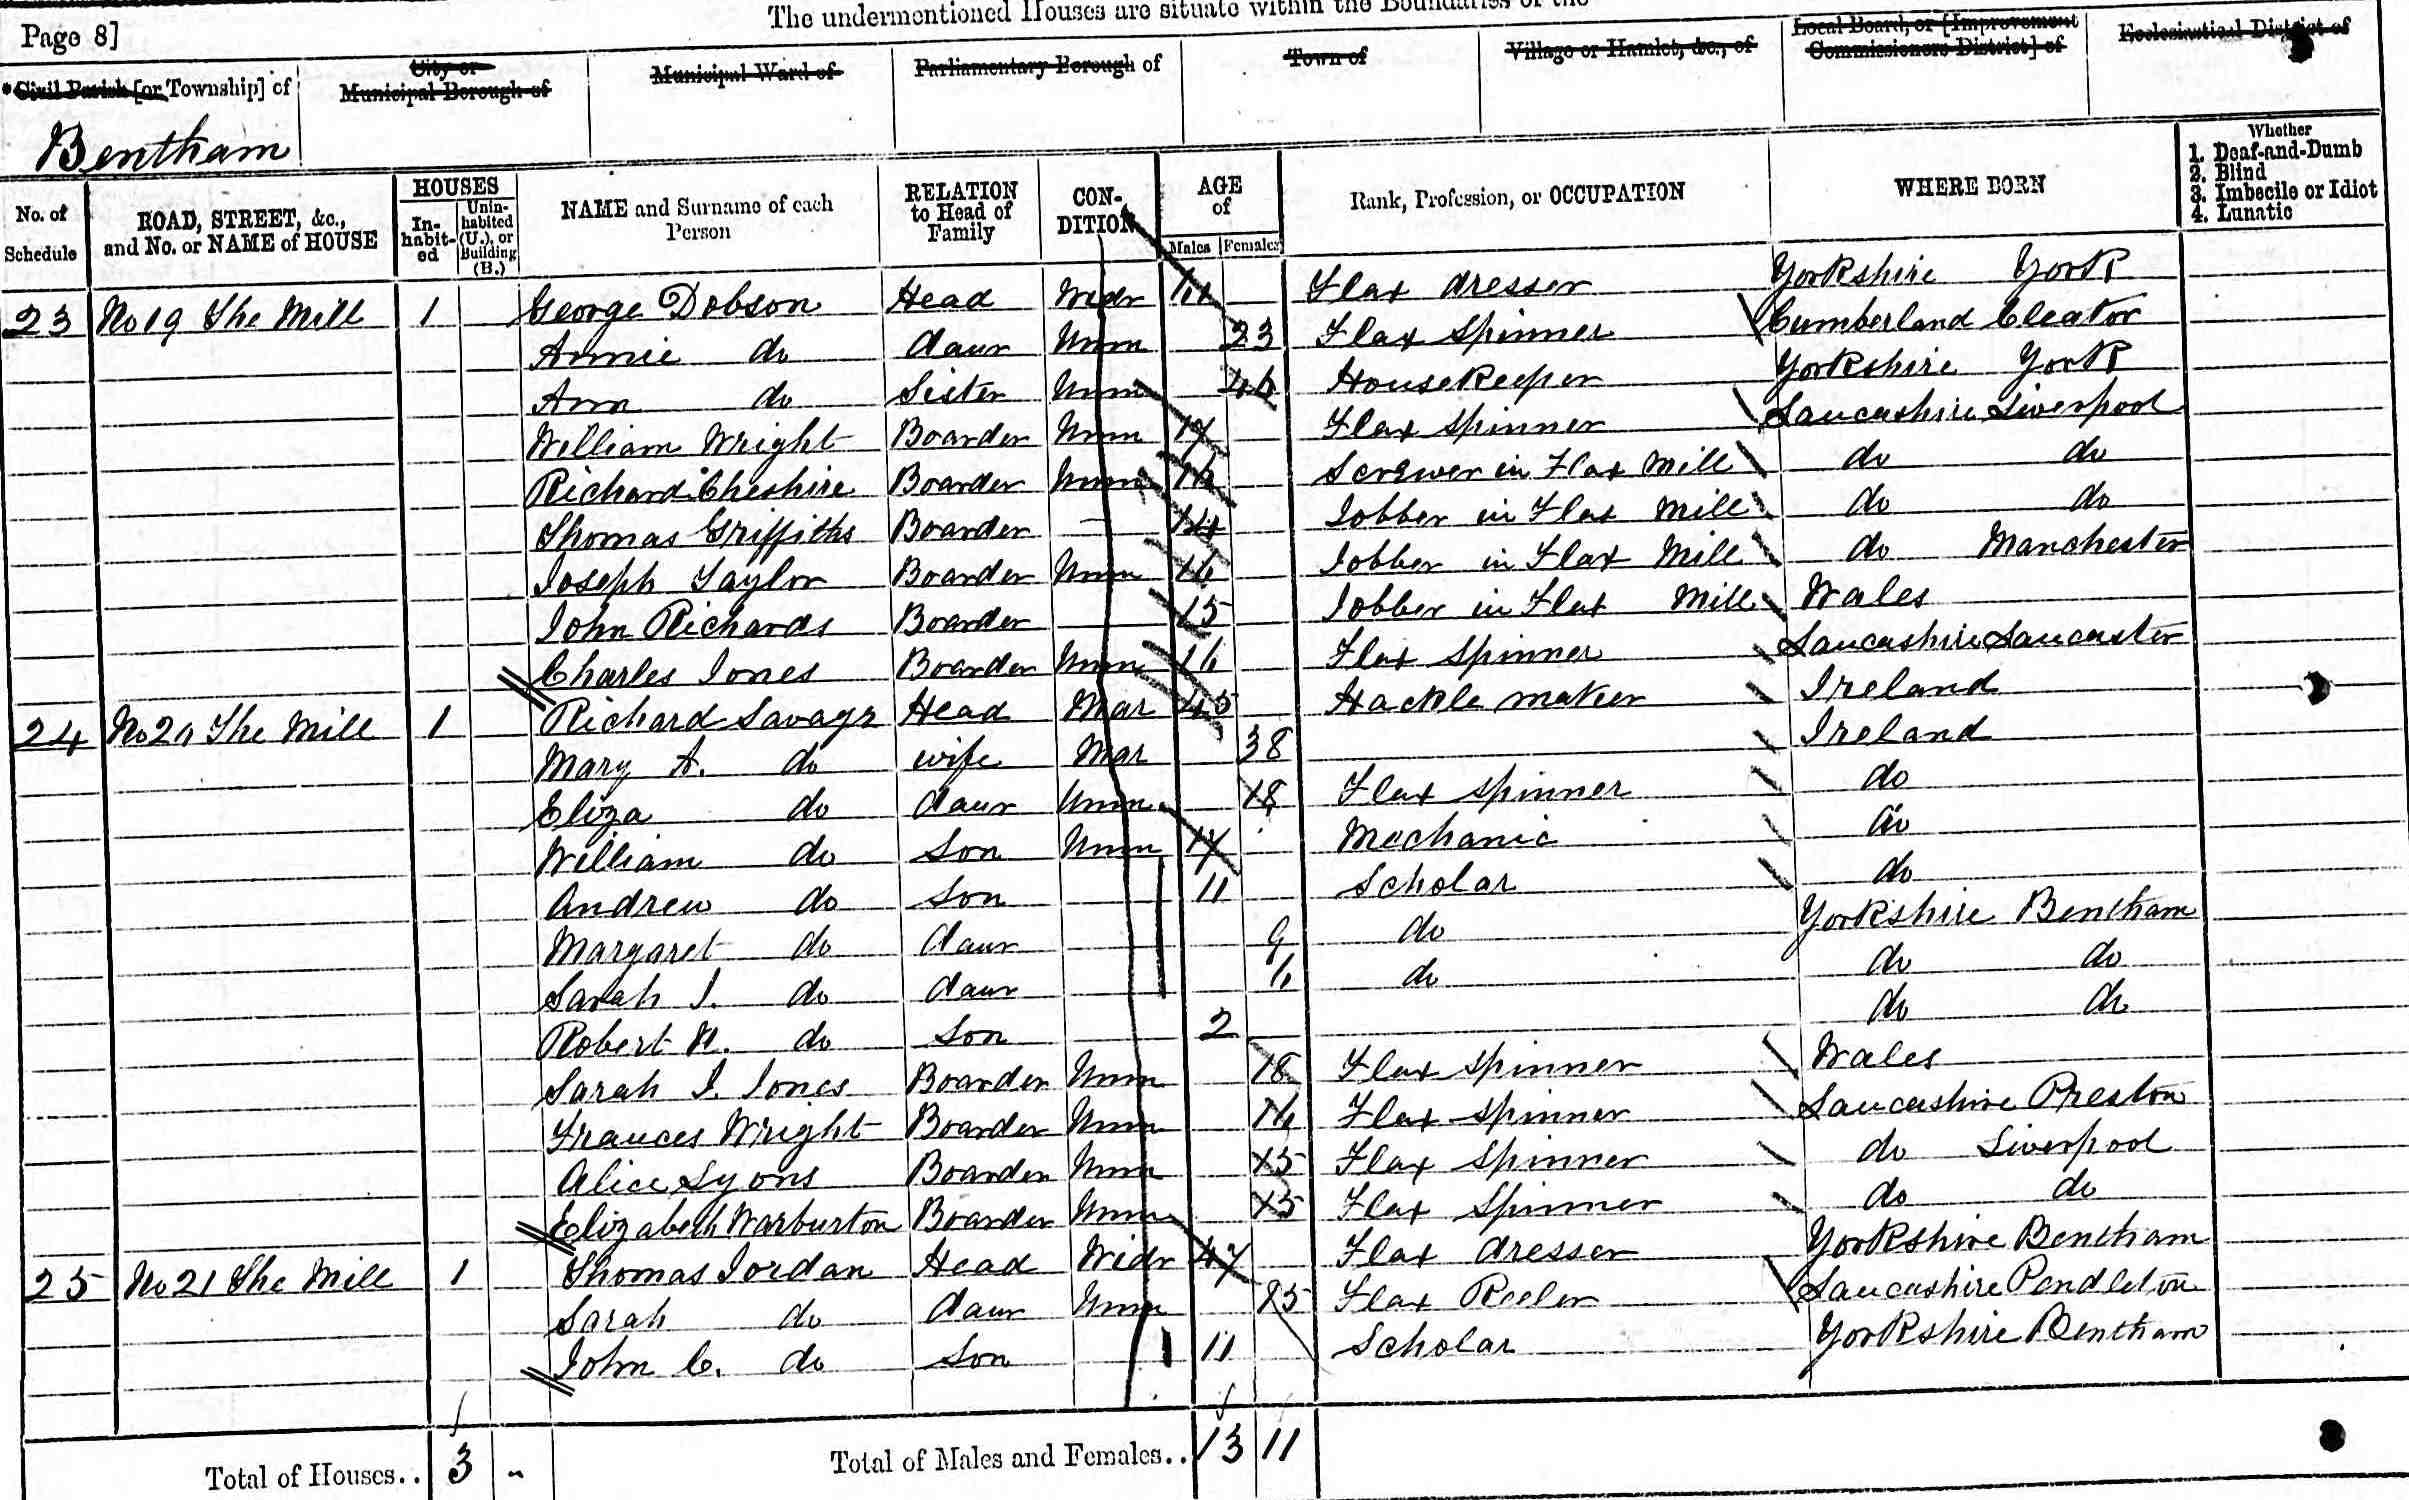 The undermentioned Houses are situate within the Boundaries of the
Page 8]
Civil Parish [or Township] of
City or Municipal Borough of
Municipal Ward of
Parliamentary Borough of
Town of
Village or Hamlet, &c., of
Local Board, or [Improvement Commissioners District] of
Ecclesiastical District of
Bentham
No. of Schedule
ROAD, STREET, &c., and No. or NAME of HOUSE
HOUSES
Inhabited
Uninhabited (U.), or Building (B.)
NAME and Surname of each Person
RELATION to Head of Family
CONDITION
AGE of
Males Females
Rank, Profession, or OCCUPATION
WHERE BORN
Whether
1. Deaf-and-Dumb
2. Blind
3. Imbecile or Idiot
4. Lunatic
23 No 19 The Mill 1 George Dobson Head Widr Flax dresser Yorkshire York
Annie do daur Unm 23 Flax spinner Cumberland Cleator
Ann do Sister Unm 46 Housekeeper Yorkshire York
William Wright Boarder Unm 17 Flax spinner Lancashire Liverpool
Richard Cheshire Boarder Unm 16 Screwer in Flax Mill do do
Thomas Griffiths Boarder — 14 Jobber in Flax Mill do do
Joseph Taylor Boarder Unm 16 Jobber in Flax Mill do Manchester
John Richards Boarder 15 Jobber in Flax Mill Wales
Charles Jones Boarder Unm 16 Flax spinner Lancashire Lancaster
24 No 20 The Mill 1 Richard Savage Head Mar 45 Hackle maker Ireland
Mary A. do wife Mar 38 Ireland
Eliza do daur Unm 18 Flax spinner do
William do Son Unm 17 Mechanic do
Andrew do Son 11 Scholar do
Margaret do daur 9 do Yorkshire Bentham
Sarah J. do daur 6 do do do
Robert H. do Son 2 do do
Sarah J. Jones Boarder Unm 18 Flax spinner Wales
Frances Wright Boarder Unm 16 Flax spinner Lancashire Preston
Alice Lyons Boarder Unm 15 Flax spinner do Liverpool
Elizabeth Warburton Boarder Unm 15 Flax spinner do do
25 No 21 The Mill 1 Thomas Jordan Head Widr 47 Flax dresser Yorkshire Bentham
Sarah do daur Unm 25 Flax Reeler Lancashire Pendleton
John C. do Son 11 Scholar Yorkshire Bentham
Total of Houses.. 3 - Total of Males and Females.. 13 11